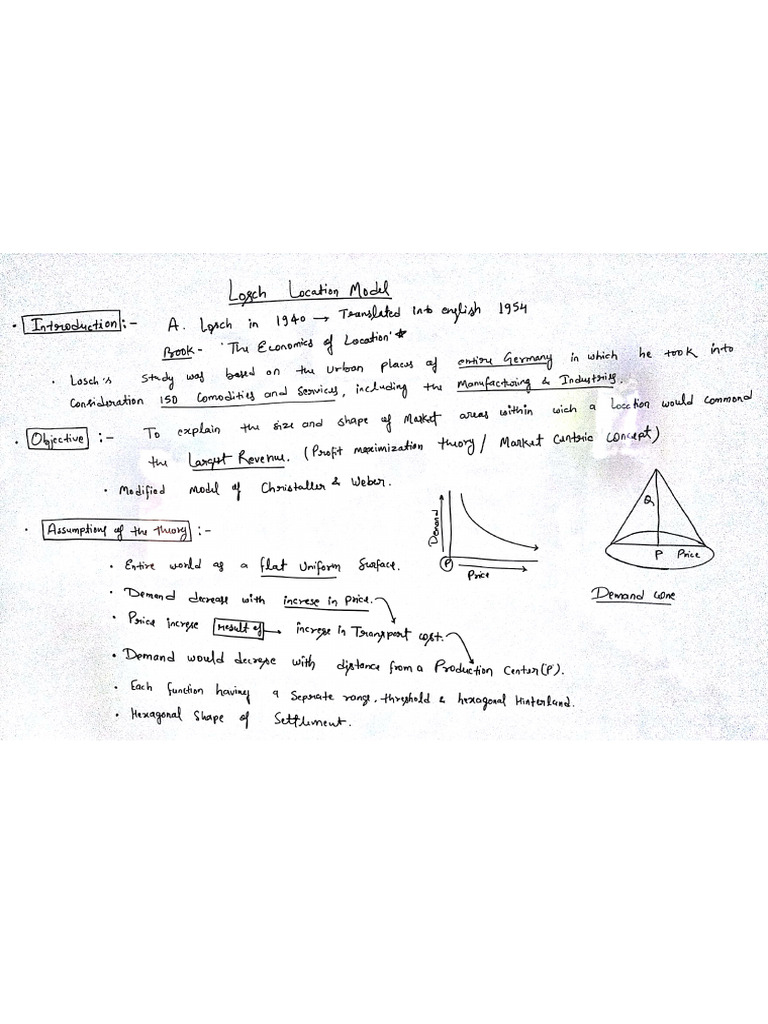 Losch Location Model
• Introduction :- A. Losch in 1940 → Translated into english 1954
Book - 'The Economics of Location' *
• Losch's study was based on the urban places of entire Germany in which he took into
consideration 150 Comodities and Services, including the Manufacturing & Industries.
• Objective :- To explain the size and shape of Market areas within wich a Location would commond
the Largest Revenue. (Profit maximization theory / Market Centric Concept)
• Modified model of Christaller & Weber.
• Assumptions of the Theory :-
• Entire world as a flat Uniform Surface.
• Demand decrease with increse in price.
• Price increse result of → increse in Transport cost.
• Demand would decrese with distance from a Production Center (P).
• Each function having a seprate range, threshold & hexagonal Hinterland.
• Hexagonal Shape of Settlement.
Demand
P
Price
Q
P Price
Demand cone